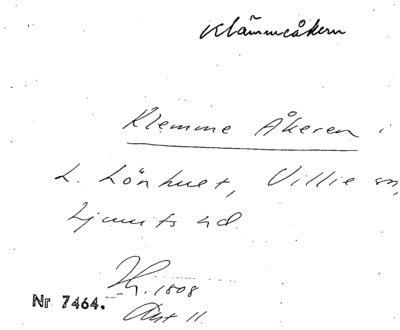 Klämmeåkern
Klemme Åkeren i
L. Lönhuet, Villie sn,
Ljunits hd.
1808
Nr 7464.
Akt 11.